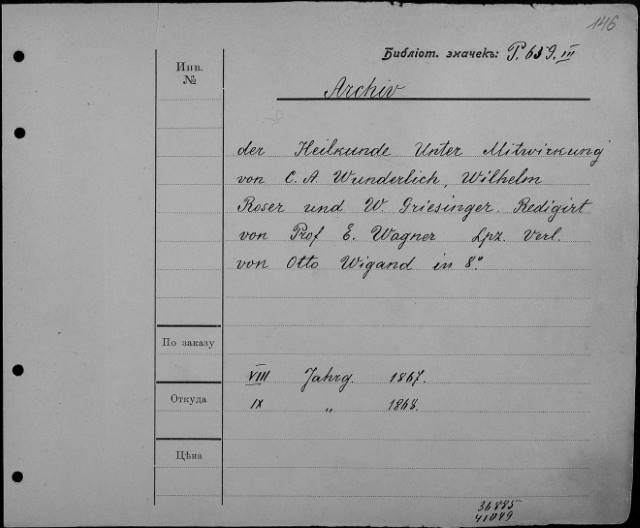 146
Библіот. значекъ: P. 659. III
Инв.
№
Archiv
der Heilkunde Unter Mitwirkung
von C. A. Wunderlich, Wilhelm
Roser und W. Griesinger. Redigirt
von Prof E. Wagner Lpz. Verl.
von Otto Wigand in 8º.
По заказу
VIII Jahrg. 1867.
Откуда
IX „ 1868.
Цѣна
36885
41049